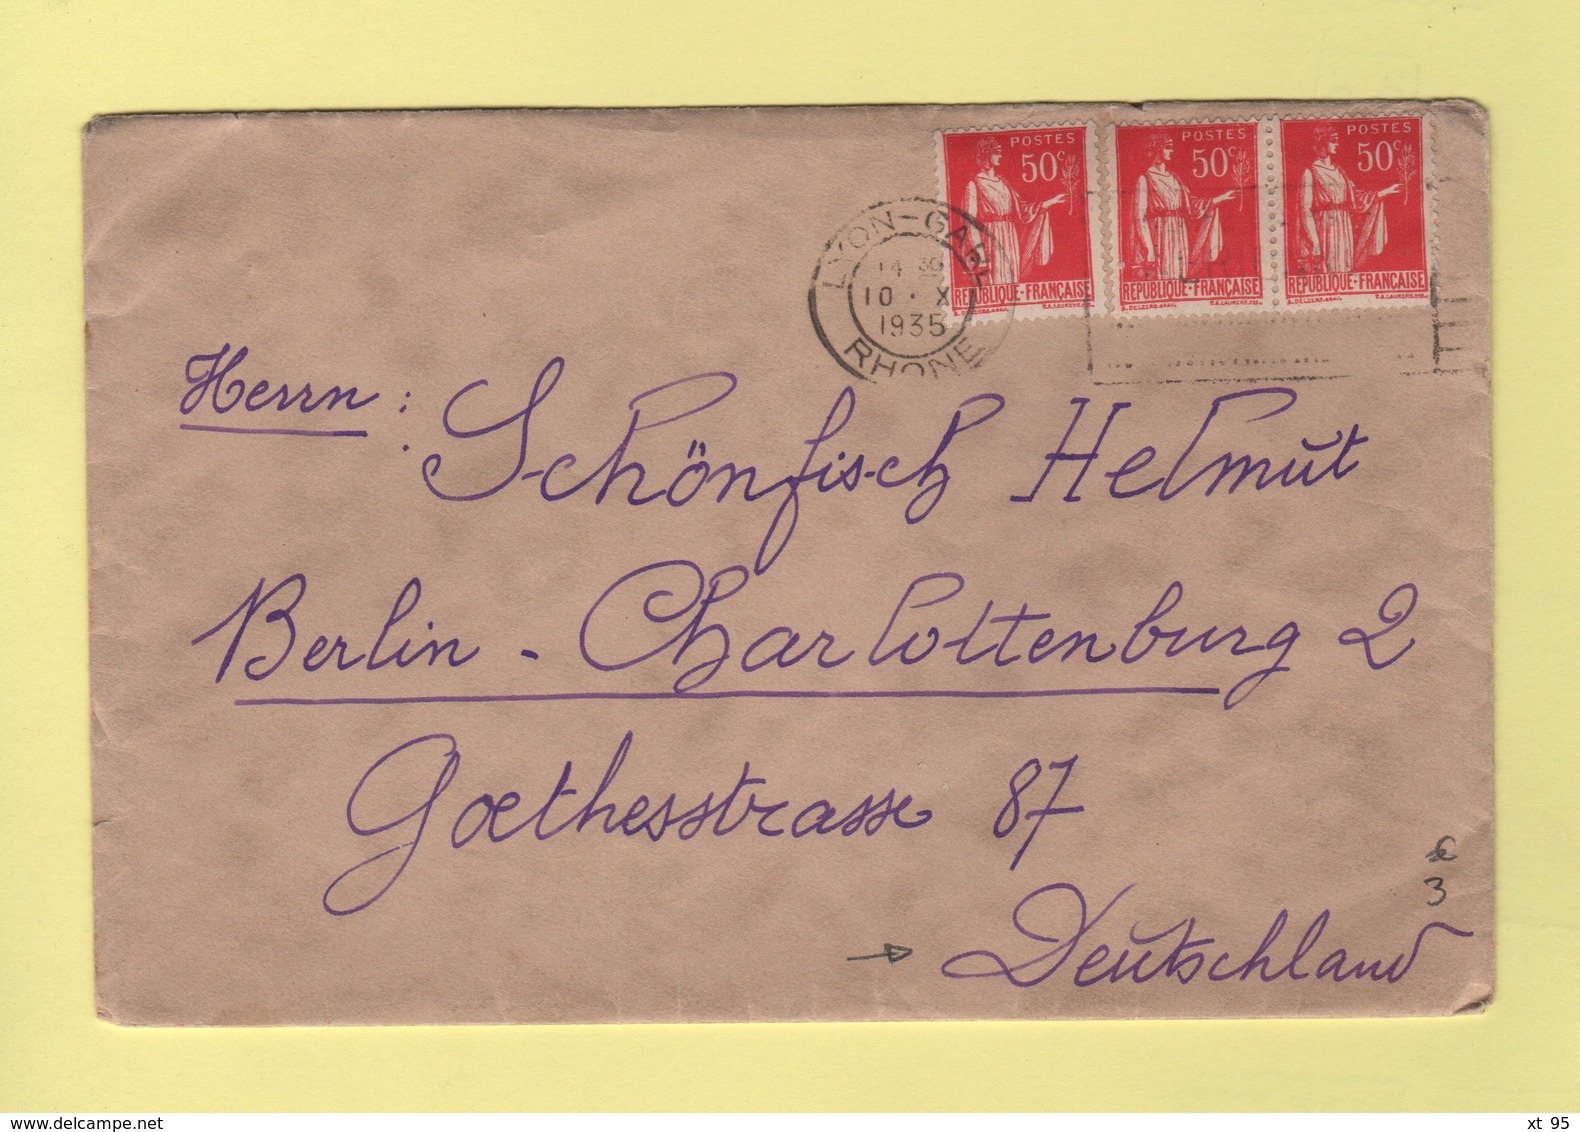 POSTES POSTES POSTES
50c 50c 50c
REPUBLIQUE-FRANÇAISE REPUBLIQUE-FRANÇAISE REPUBLIQUE-FRANÇAISE
LYON-GARE
14 30
10 . X
1935
RHONE
Herrn :
Schönfisch Helmut
Berlin - Charlottenburg 2
Goethesstrasse 87
3
Deutschland
delcampe.net
xt 95